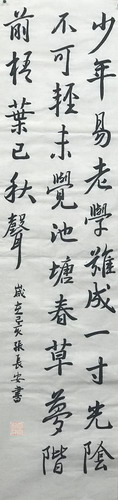 少年易老學難成一寸光陰
不可輕未覺池塘春草夢階
前梧葉已秋聲
歲在己亥張長安書